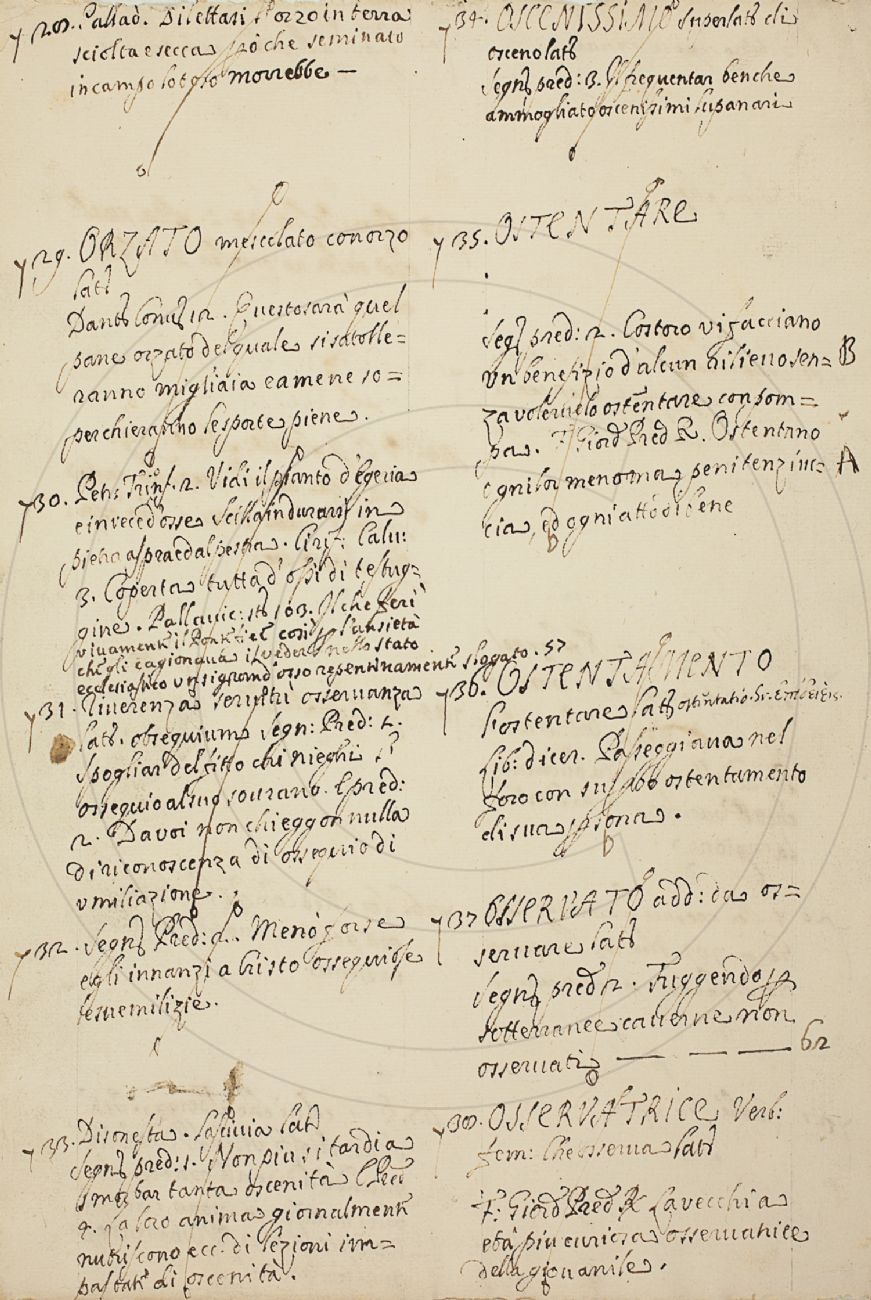 28. Pallad. Dilettasi l'orzo in terra
sciolta e secca pò che seminato
in campo lotoso morrebbe —
29. ORZATO mescolato con orzo
lat.
Dant. Conv. 12. Questo sarà quel
pane orzato del quale si satolle=
ranno migliaia e a me ne so=
perchieranno le sporte piene.
30. Petr. Trinf. 2. Vidi il pianto d'Egeria
e in vece d'osse Scilla indurarsi in
pietra aspra ed alpestra. Cirif: Calu:
3. Coperta tutta d'ossi di testug=
gine. Pallavic: 163. Il che ferì
vivamente il cosi l'ansietà
che gli cagionava il vedere nello stato
ecclesiastico un si grand'osso repentinamente slogato. 57
31. Riverenza osservanza
lat. obsequium Segn: Pred: 2.
Spogliar del fitto chi nieghi
ossequio al suo sourano. E pred:
2. Da voi non chieggon nulla
di riconoscenza di ossequio di
umiliazione.
32. Segn. Pred: 2. Menò forse
egli innanzi a Cristo ossequiose
le sue milizie.
33. Disonesta. lascivia lat.
Segn. pred: 1. Non più si tardi a
smorbar tanta oscenità E Pred
4. La loro anima giornalmente
nutriscono ecc. di lezioni im=
pastate di oscenità.
34. OSCENISSIMO Superlat. di
osceno lat.
Segn. pred: 3. Il frequentar benche
ammogliato oscenissimi lupanari
35. OSTENTARE
Segn. pred: 2. Costoro vi facciano
un beneficio d'alcun rilievo sen= B
za volervelo ostentare con pom=
pa. F. Giord. Pred. R. Ostentano
ogni lor menoma penitenziuc= A
cia, ed ogni atto di bene
36. OSTENTAMENTO
l'ostentare lat. ostentatio. Gr.
lib: dicer. Passeggiava nel
foro con superbo ostentamento
di sua persona.
37 OSSERVATO add: da os=
servare lat.
Segn. pred. 2. Fuggendo p
sotterranee caverne non
osservati — — — 62
38. OSSERVATRICE Verb:
fem: Che osserva lat.
F. Giord. Pred. R. La vecchia
età più curiosa osservatrice
della giovanile.